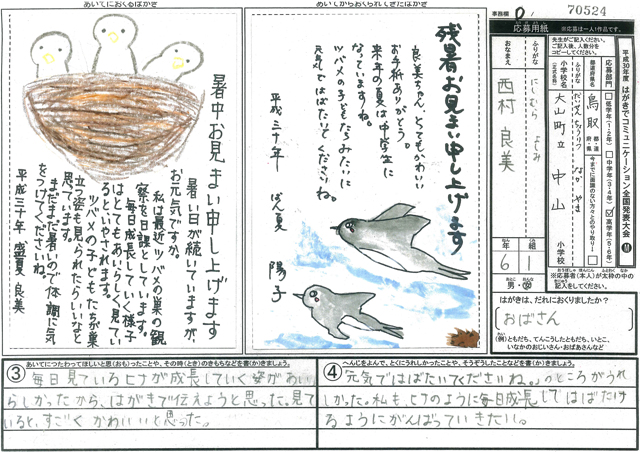 あいてにおくるはがき
暑中お見まい申し上げます
暑い日が続いていますが、
お元気ですか。
私は最近ツバメの巣の観
察を日課としています。
毎日成長していく様子
はとてもあいらしく、見てい
るといやされます。
ツバメの子どもたちが巣
立つ姿も見られたらいいなと
思っています。
まだまだ暑いので体調に気
をつけてくださいね。
平成三十年 盛夏 良美
あいてからおくられてきたはがき
残暑お見まい申し上げます
良美ちゃん、とってもかわいい
お手紙ありがとう。
来年の夏は中学生に
なっていますね。
ツバメの子どもたちみたいに
元気ではばたいてくださいね。
平成三十年 ばん夏 陽子
事務欄
70524
応募用紙
※応募は一人1作品です。
先生がご記入ください。
ご記入後、人数分を
コピーしてください。
平成30年度 はがきでコミュニケーション全国発表大会
応募部門
低学年(1・2年)
中学年(3・4年)
高学年(5・6年)
都道府県名
鳥取
都・道
府・県
今までに面識のない方々とのやり取り
ふりがな
だいせんちょうりつ なかやま
小学校名
(正式名称)
大山町立 中山
小学校
ふりがな
にしむら よしみ
おなまえ
西村 良美
年
6
組
1
男・女
※応募者(本人)が太枠の中の
記入をしてください。
はがきは、だれにおくりましたか?
(おばさん)
(例)ともだち、てんこうしたともだち、いとこ、
いなかのおじいさん・おばあさんなど
③
あいてにつたわってほしいと思(おも)ったことや、その時(とき)のきもちなどを書(か)きましょう。
毎日見ているヒナが成長していく姿があい
らしかったから、はがきで伝えようと思った。見て
いると、すごくかわいいと思った。
④
へんじをよんで、とくにうれしかったことや、そうぞうしたことなどを書(か)きましょう。
元気ではばたいてくださいね。のところがうれ
しかった。私も、ヒナのように毎日成長してはばたけ
るようにがんばっていきたい。